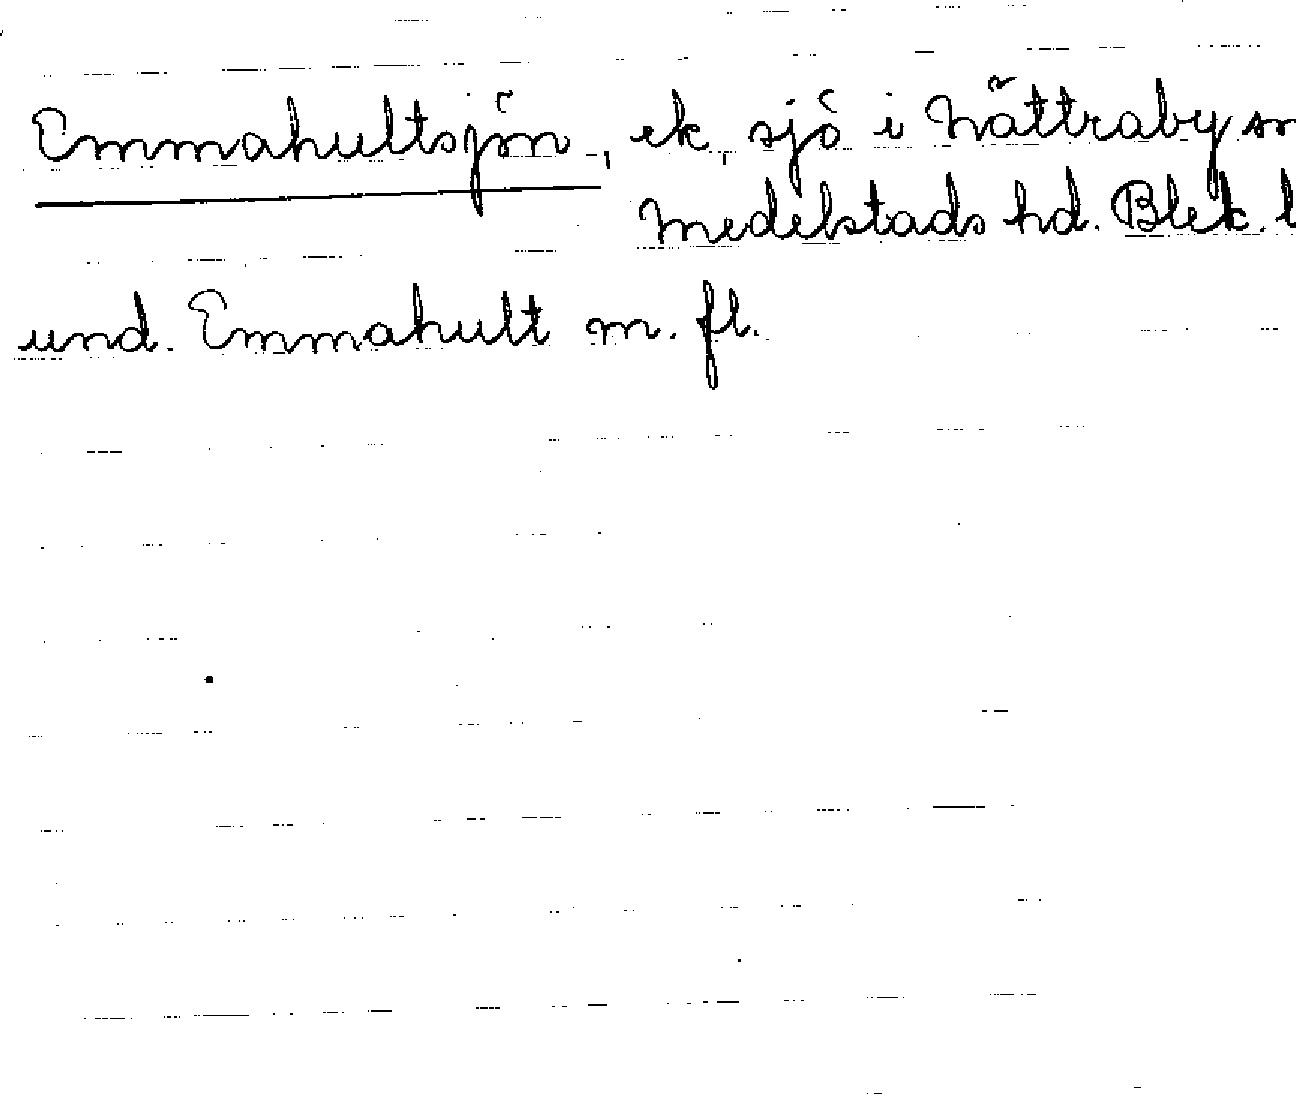 Emmahultsjön, ek, sjö i Nättraby sn
Medelstads hd. Blek. l
und. Emmahult m. fl.